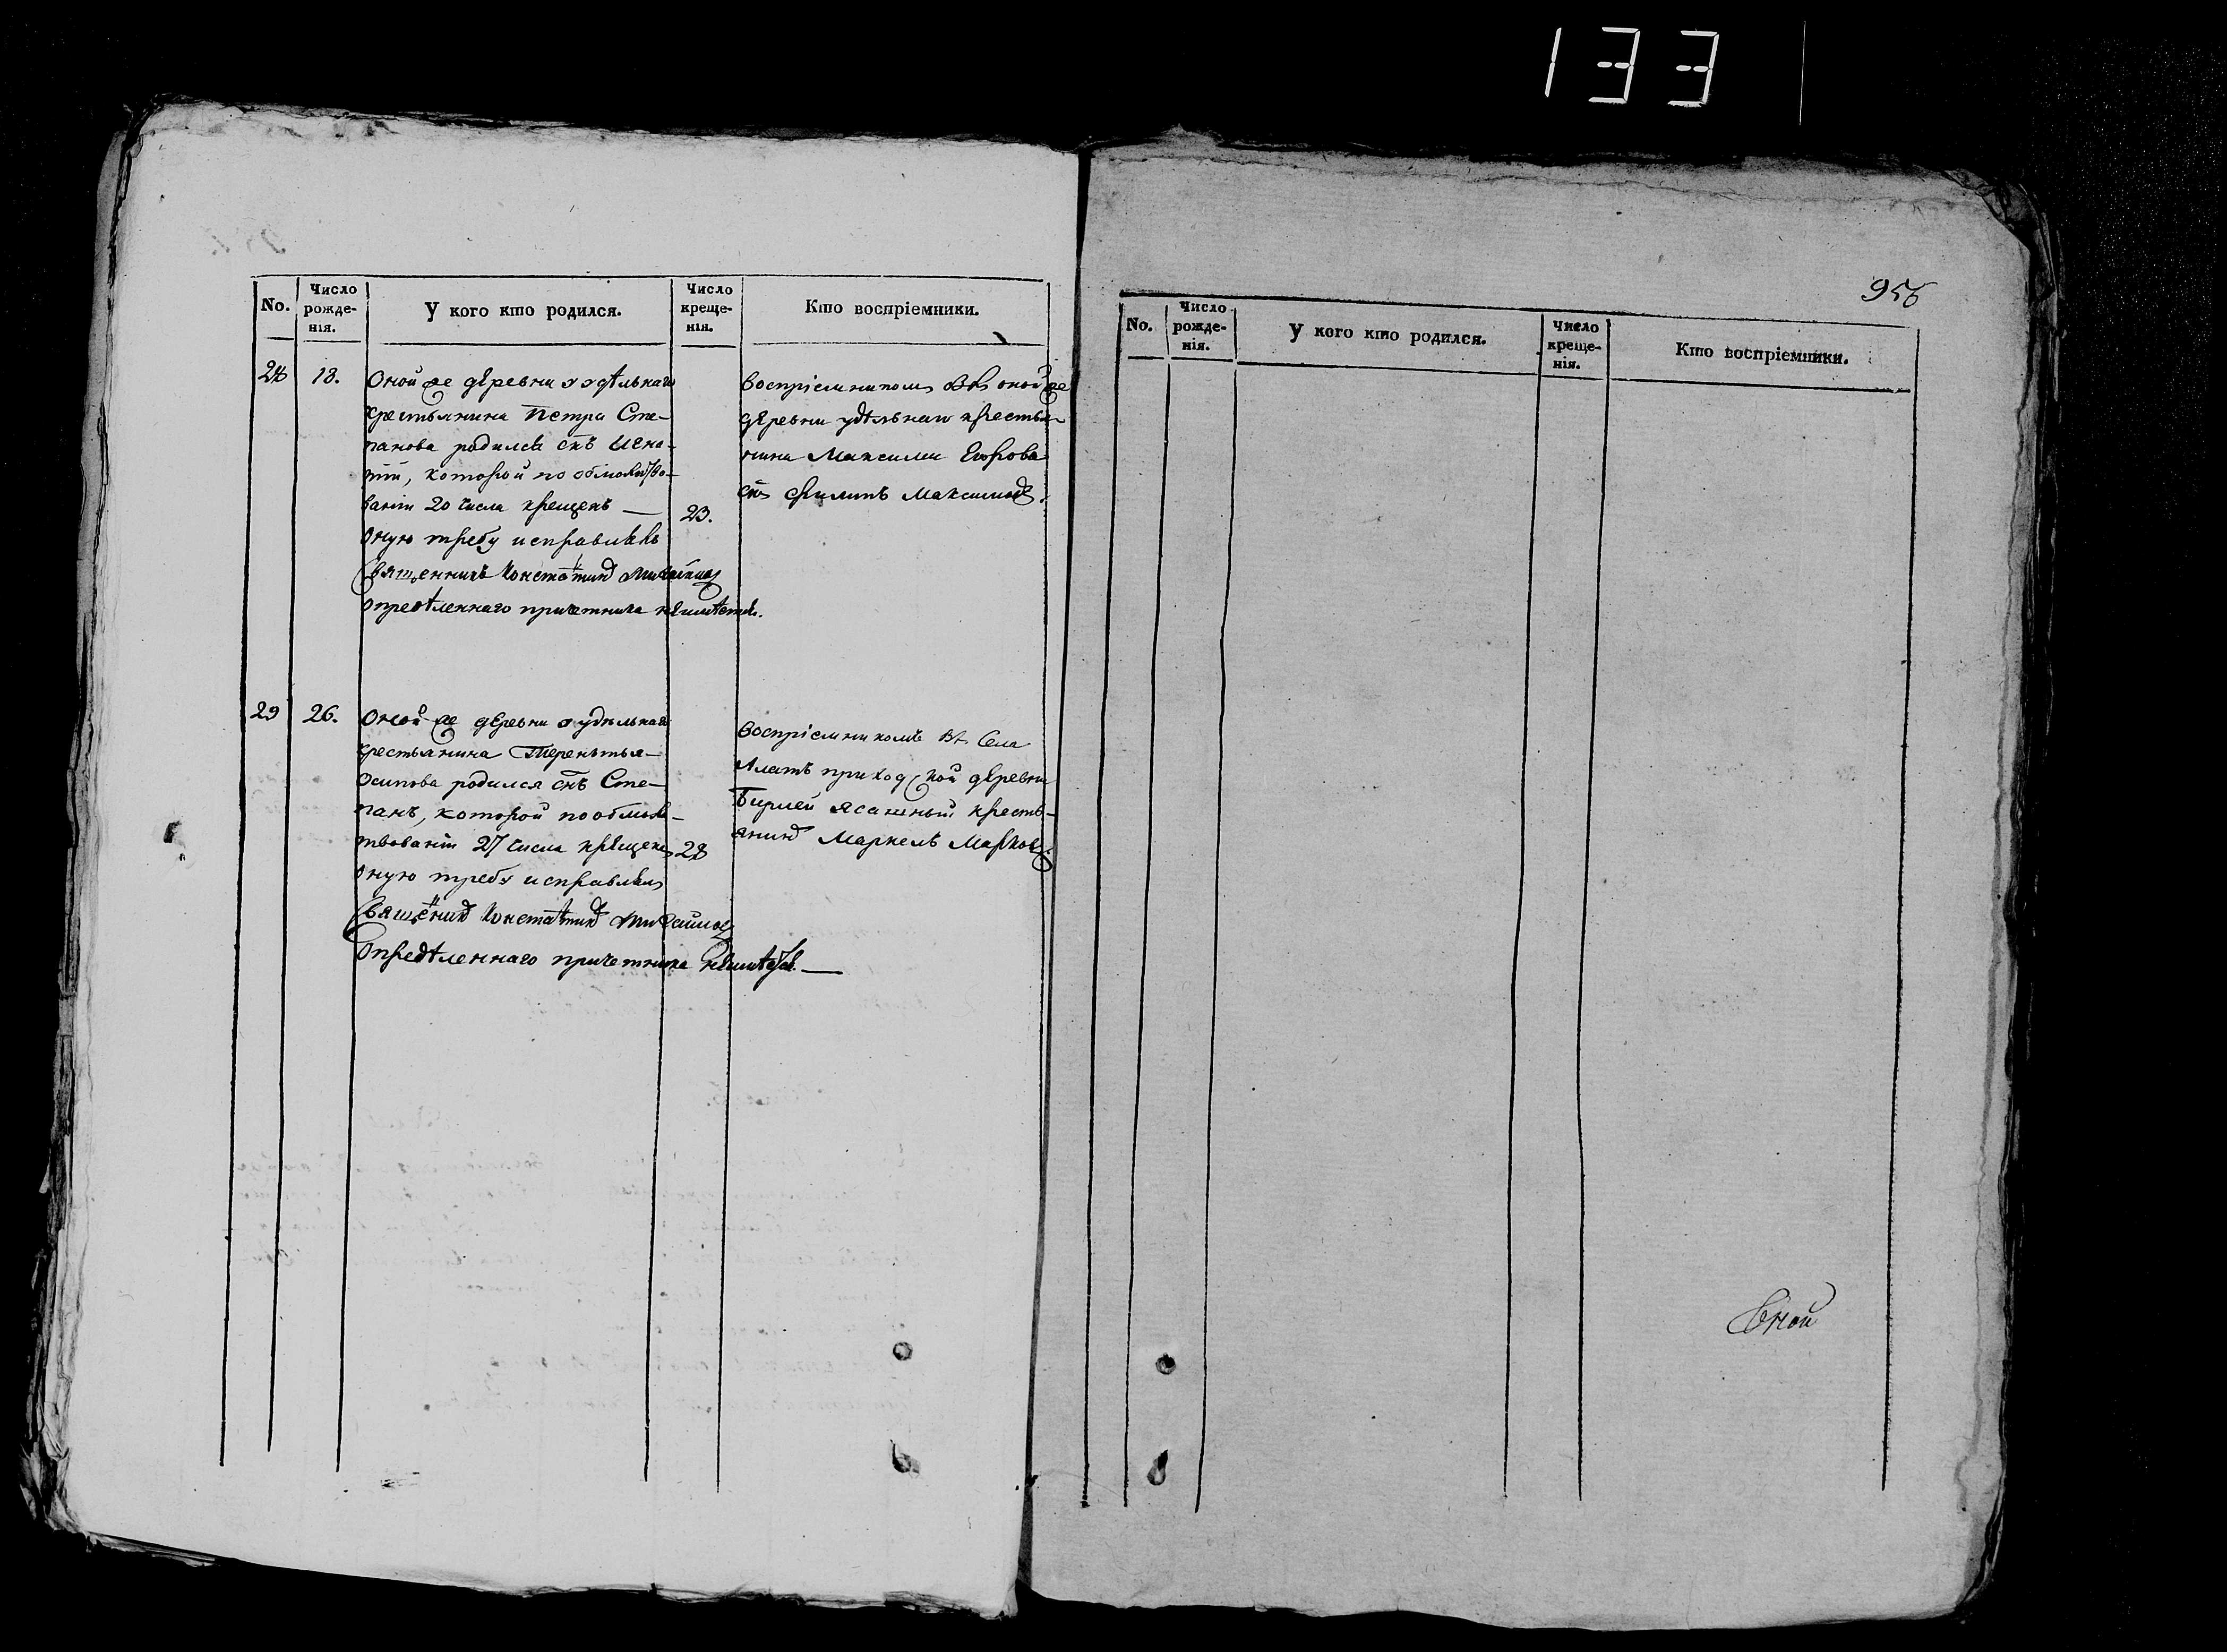 133
No.
Число рожденія.
У кого кто родился.
Число крещенія.
Кто воспріемники.
28
18.
Оной же деревни у удѣльнаго
крестьянина Петра Сте-
панова родился снъ Игна-
тій, которой по обмолитво-
ваніи 20 числа крещенъ —
оную требу исправлялъ
Священникъ Констатинъ Михайловъ
опредѣленнаго причетника неимѣетъся.
23.
воспріемникомъ былъ оной же
деревни удѣльнаго крестья-
нина Максима Егорова
снъ Филипъ Максимовъ.
29
26.
Оной же деревни у удѣльнаго
крестьянина Терентья
Осипова родился снъ Сте-
панъ, которой по обмоли-
твованіи 27 числа крещенъ
оную требу исправлялъ
Священикъ Констатинъ Михайловъ
Опредѣленнаго причетника неимѣется. —
28
воспріемникомъ былъ села
Алатъ приходской деревни
ясашный кресть-
янинъ Маркелъ Марковъ.
956
No.
Число рожденія.
У кого кто родился.
Число крещенія.
Кто воспріемники.
Оной